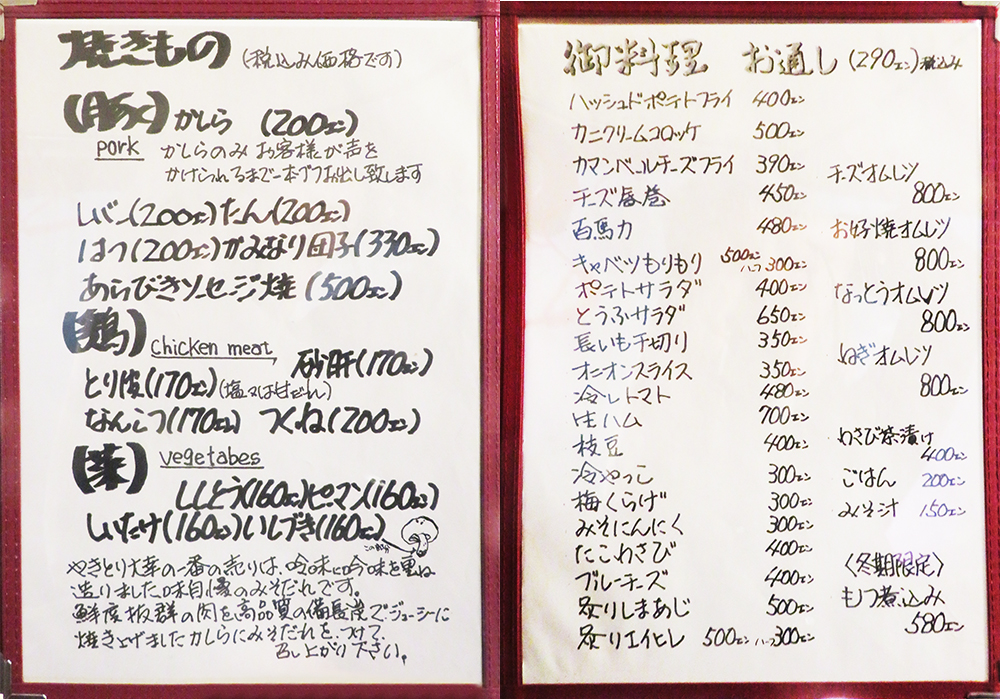 焼きもの (税込み価格です)
(豚) かしら (200エン)
pork かしらのみ お客様が声を
かけられるまで一本づつお出し致します
レバー(200エン) たん(200エン)
はつ(200エン) かみなり団子(330エン)
あらびきソーセージ焼 (500エン)
(鶏) Chicken meat 砂肝(170エン)
とり皮(170エン) (塩又は甘だれ)
なんこつ(170エン) つくね(200エン)
(菜) vegetabes
ししとう(160エン) ピーマン(160エン)
しいたけ(160エン) いしづき(160エン)
この部分
やきとり大幸の一番の売りは、吟味に吟味を重ね
造りました味自慢のみそだれです。
鮮度抜群の肉を、高品質の備長炭でジューシーに
焼き上げましたかしらにみそだれをつけて
召し上がり下さい。
御料理 お通し (290エン) 税込み
ハッシュドポテトフライ 400エン
カニクリームコロッケ 500エン
カマンベールチーズフライ 390エン
チーズ海苔巻 450エン
百馬力 480エン
キャベツもりもり 500エン ハーフ300エン
ポテトサラダ 400エン
とうふサラダ 650エン
長いも千切り 350エン
オニオンスライス 350エン
冷しトマト 480エン
生ハム 700エン
枝豆 400エン
冷やっこ 300エン
梅くらげ 300エン
みそにんにく 300エン
たこわさび 400エン
ブルーチーズ 400エン
炙りしまあじ 500エン
炙りエイヒレ 500エン ハーフ300エン
チーズオムレツ
800エン
お好焼オムレツ
800エン
なっとうオムレツ
800エン
ねぎオムレツ
800エン
わさび茶漬け
400エン
ごはん 200エン
みそ汁 150エン
〈冬期限定〉
もつ煮込み
580エン